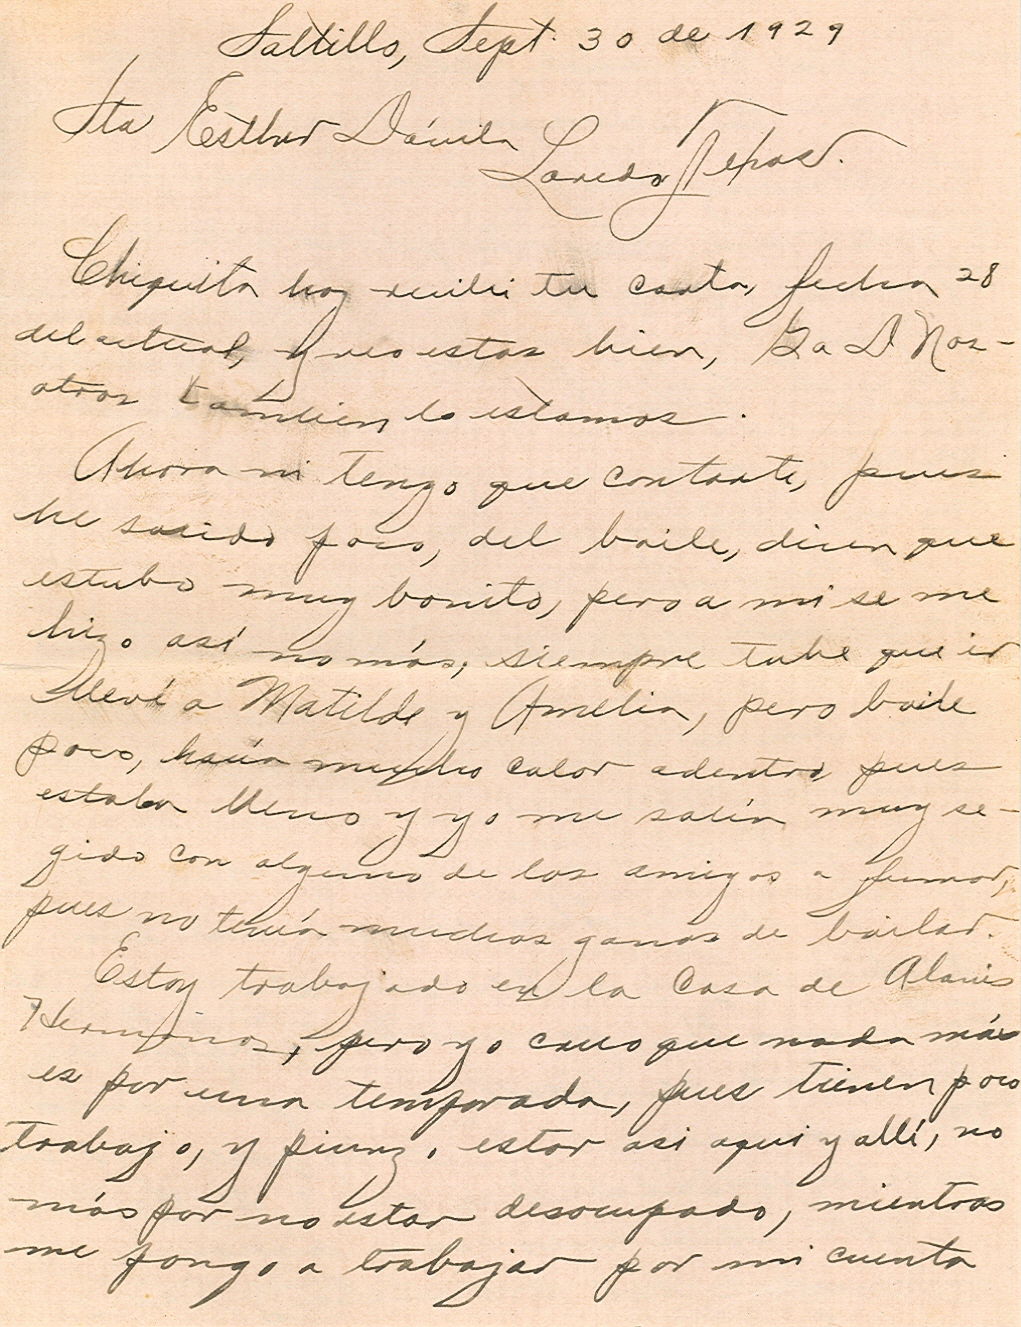 Saltillo, Sept. 30 de 1929
Sta Esther Dávila
Laredo Texas.
Chiquita hoy recibi tu carta, fecha 28
del actual, y veo estas bien, Ga D Nos-
otros tambien lo estamos.
Ahora ni tengo que contarte, pues
he salido poco, del baile, dicen que
estubo muy bonito, pero a mi se me
hizo así no más, siempre tube que ir
llevé a Matilde y Amelia, pero baile
poco, hacía mucho calor adentro pues
estaba lleno y yo me salía muy se-
gido con alguno de los amigos a fumar,
pues no tenía muchas ganas de bailar.
Estoy trabajado en la Casa de Alanis
Hermanos, pero yo creo que nada más
es por una temporada, pues tienen poco
trabajo, y pienzo estar asi aqui y allí, no
más por no estar desocupado, mientras
me pongo a trabajar por mi cuenta